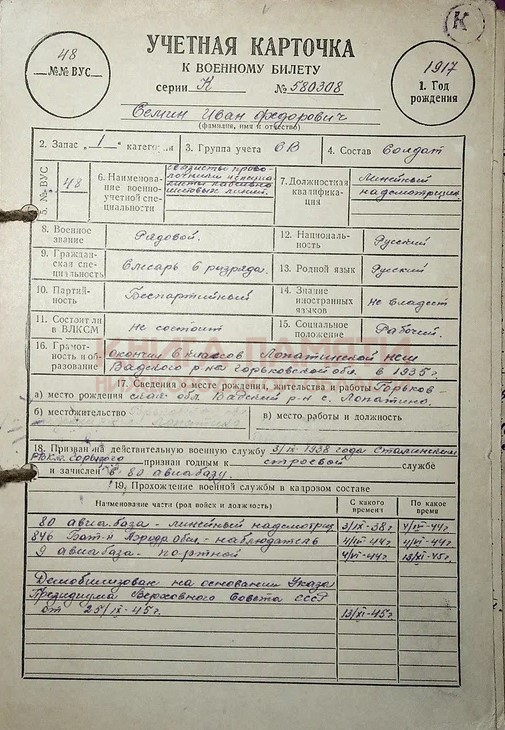 К
48
№№ ВУС
УЧЕТНАЯ КАРТОЧКА
К ВОЕННОМУ БИЛЕТУ
серии К № 580308
1917
1. Год
рождения
Семин Иван Федорович
(фамилия, имя и отчество)
2. Запас 1 категории
3. Группа учета СВ
4. Состав Солдат
5. № ВУС
48
6. Наименование военно-учетной специальности
7. Должностная квалификация
Линейный
надсмотрщик
8. Военное звание
Рядовой.
12. Национальность
Русский
9. Гражданская специальность
Слесарь 6 разряда.
13. Родной язык
Русский
10. Партийность
Беспартийный
14. Знание иностранных языков
Не владеет
11. Состоит ли в ВЛКСМ
не состоит
15. Социальное положение
Рабочий.
16. Грамотность и образование
окончил 6 классов Лопатинской нсш
Вадского р-на Горьковской обл. в 1935 г.
КНИГА ПАМЯТИ
17. Сведения о месте рождения, жительства и работы
а) место рождения Горьковская обл. Вадский р-н с. Лопатино.
б) местожительство
в) место работы и должность
18. Призван на действительную военную службу 3/IX 1938 года Сталинским
РВК г. Горького признан годным к строевой службе
и зачислен в 80 авиабазу.
19. Прохождение военной службы в кадровом составе
Наименование части (род войск и должность)
С какого времени
По какое время
80 авиабаза - линейный надсмотрщ 3/IX-38 г. 4/VI-44 г
846 Бат-н Аэрод Обсл - наблюдатель 4/VI-44 г 4/VI-44 г
9 авиабаза. портной 4/VI-44 г 13/XI-45 г.
Демобилизован на основании Указа
Президиума Верховного Совета СССР
от 25/IX-45 г. 13/XI-45 г.